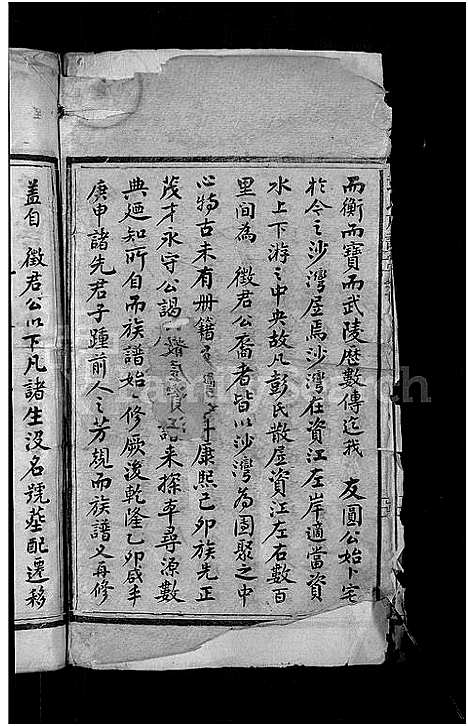 而衡而寶而武陵歷數傳迄我 友圓公始卜宅
於今之沙灣居焉沙灣在資江左岸適當資
水上下游之中央故凡彭氏散居資江左右數百
里間為 徵君公裔者皆以沙灣為團聚之中
心特古未有册籍 康熙己卯族先正
茂才永守公謁 語來探本尋源數
典廻知所自而族譜始一修厥後乾隆乙卯咸丰
庚申諸先君子踵前人之芳規而族譜又再修
盖自 徵君公以下凡諸生沒名號墓配遷移
FamilySearch